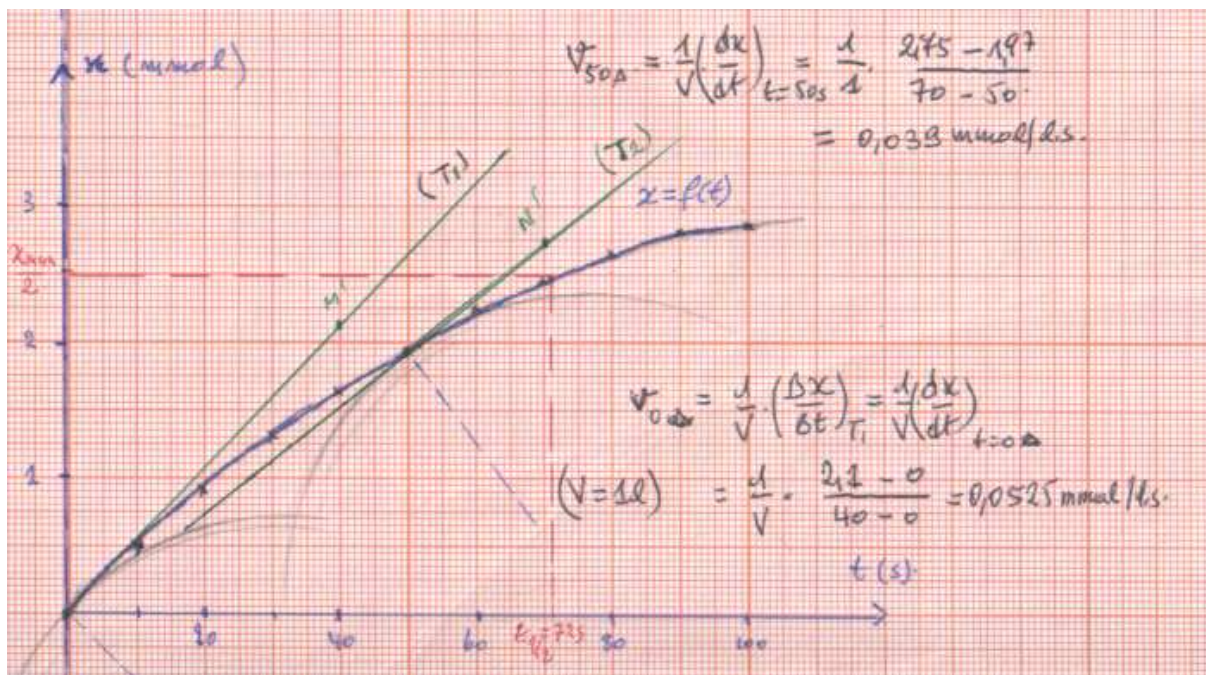 x (mmol)
V50s = 1/V (dx/dt)t=50s = 1/1 . 2,75 – 1,97 / 70 – 50
= 0,039 mmol/l.s.
(T1)
(T2)
x = f(t)
N'
M'
3
xmax/2
2
1
v0s = 1/V . (Δx/Δt)T1 = 1/V (dx/dt)t=0s
(V=1l) = 1/V . 2,1 – 0 / 40 – 0 = 0,0525 mmol/l.s.
t (s)
20
40
t1/2=72s
60
80
100